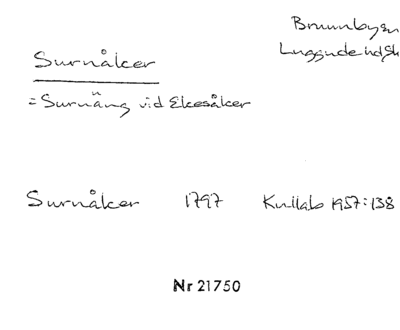 Brunnbysn
Luggude hd Sk
Surnåker
= Surnäng vid Ekesåker
Surnåker 1797 Kullab 1957:138
Nr 21750